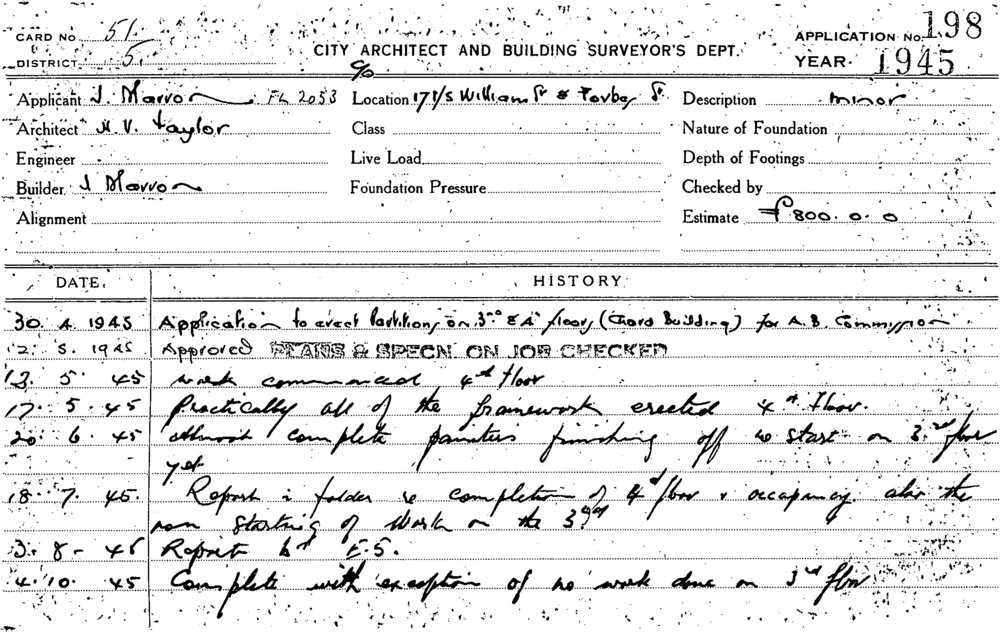 CARD No 51.
DISTRICT 5.
CITY ARCHITECT AND BUILDING SURVEYOR'S DEPT.
APPLICATION No. 198
YEAR 1945
Applicant J. Marron FL 2053
c/o
Location 171/5 William St & Forbes St.
Description minor
Architect H. V. Taylor
Class
Nature of Foundation
Engineer
Live Load
Depth of Footings
Builder J Marron
Foundation Pressure
Checked by
Alignment
Estimate £800.0.0
DATE. HISTORY
30. 4. 1945 Application to erect Partitions on 3rd & 4th floors (Chard Building) for A.B. Commission
2. 5. 1945 Approved PLANS & SPECN. ON JOB CHECKED
13. 5. 45 work commenced 4th floor
17. 5. 45 Practically all of the framework erected 4th floor.
20. 6. 45 almost complete painters finishing off no start on 3rd floor
yet
18. 7. 45. Report in folder re completion of 4th floor & occupancy. also the
non starting of work on the 3rd
3. 8. 45 Report F.S.
4. 10. 45 Complete with exception of no work done on 3rd floor